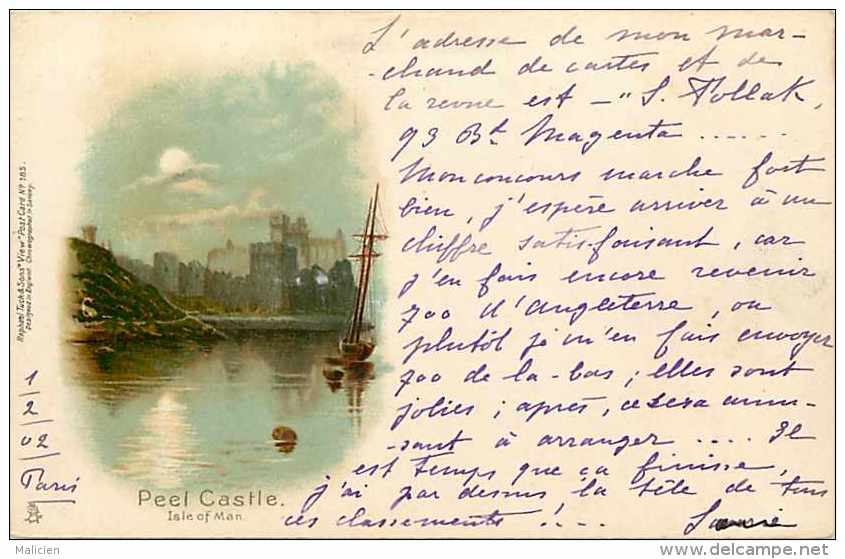 L'adresse de mon mar-
-chand de cartes et de
la revue est - "S. Pollak,
93 Bd Magenta ......
Mon concours marche fort
bien, j'espère arriver à un
chiffre satisfaisant, car
j'en fais encore revenir
700 d'Angleterre, ou
plutôt je m'en fais envoyer
700 de la-bas ; elles sont
jolies ; après, ce sera amu-
-sant à arranger .... Il
est temps que ça finisse,
j'ai par dessus la tête de tous
ces classements !...
Raphael Tuck & Sons "View" Post Card No 185.
Designed in England. Chromographed in Saxony.
1
2
02
Paris
Peel Castle.
Isle of Man
Malicien
www.delcampe.net